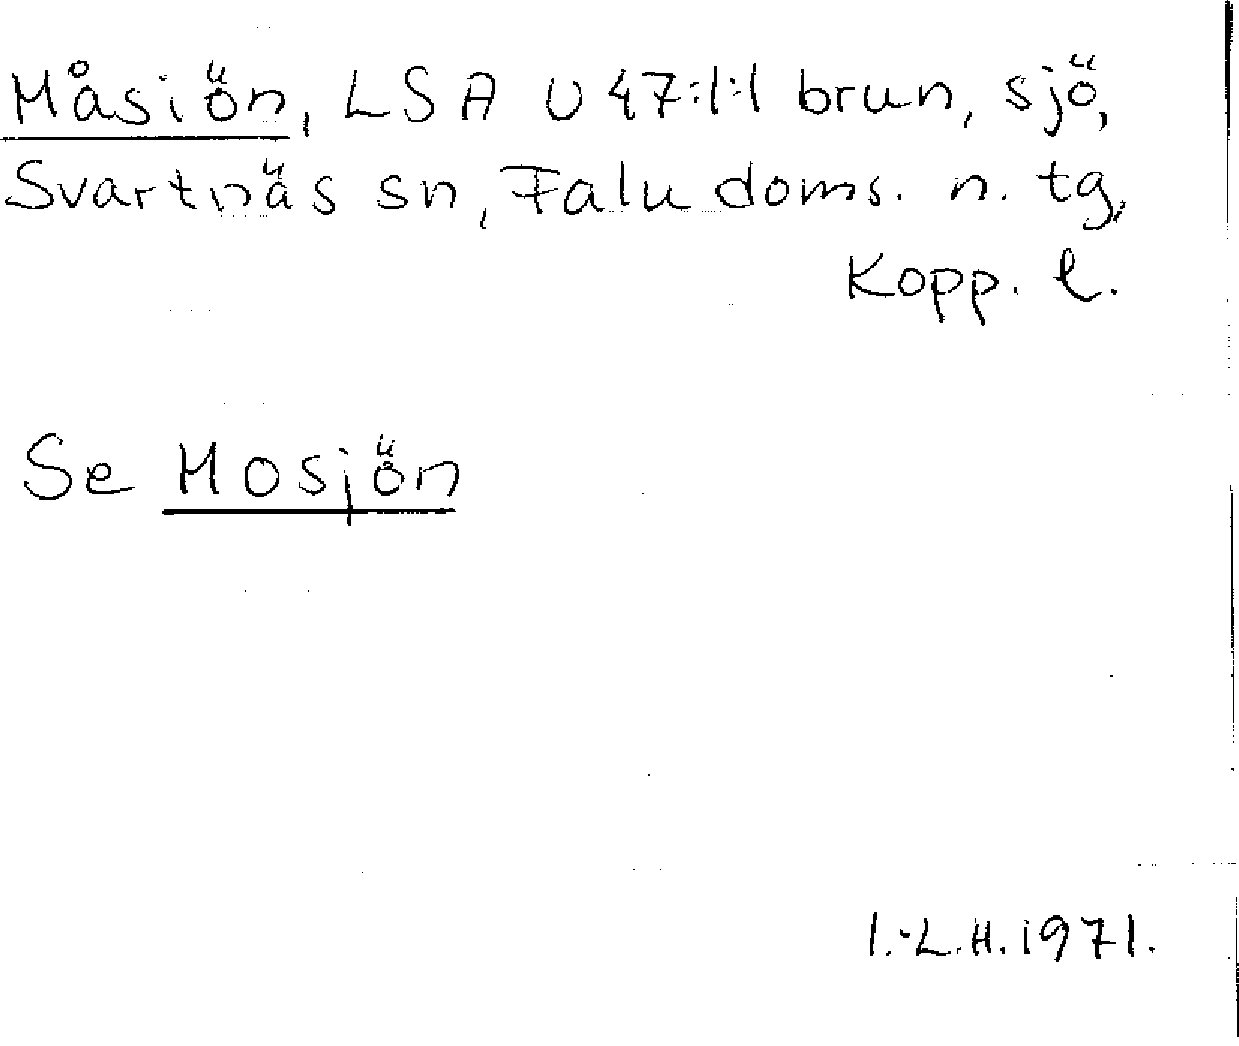 Måsiön, LSA U 47:1:1 brun, sjö,
Svartnäs sn, Falu doms. n. tg,
Kopp. l.
Se Mosjön
I.-L.H. 1971.